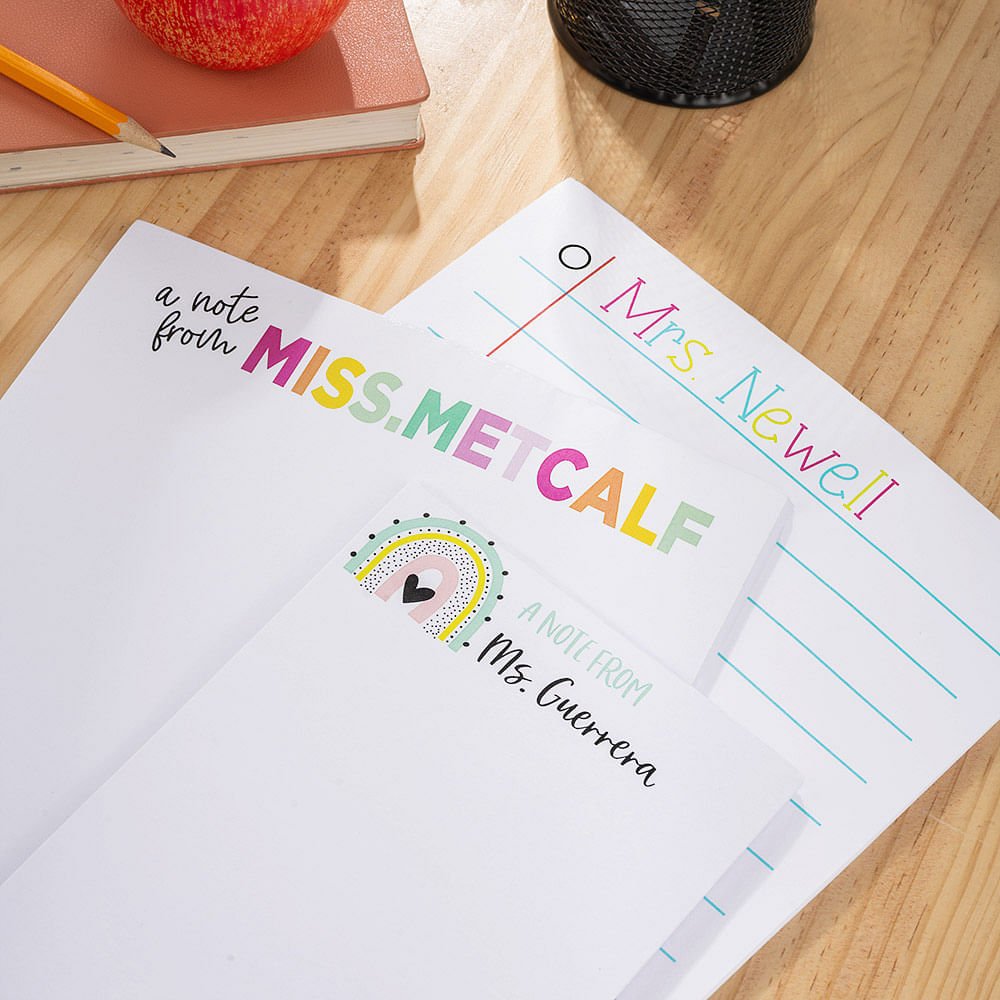 a note
from MISS.METCALF
Mrs. Newell
A NOTE FROM
Ms. Guerrera